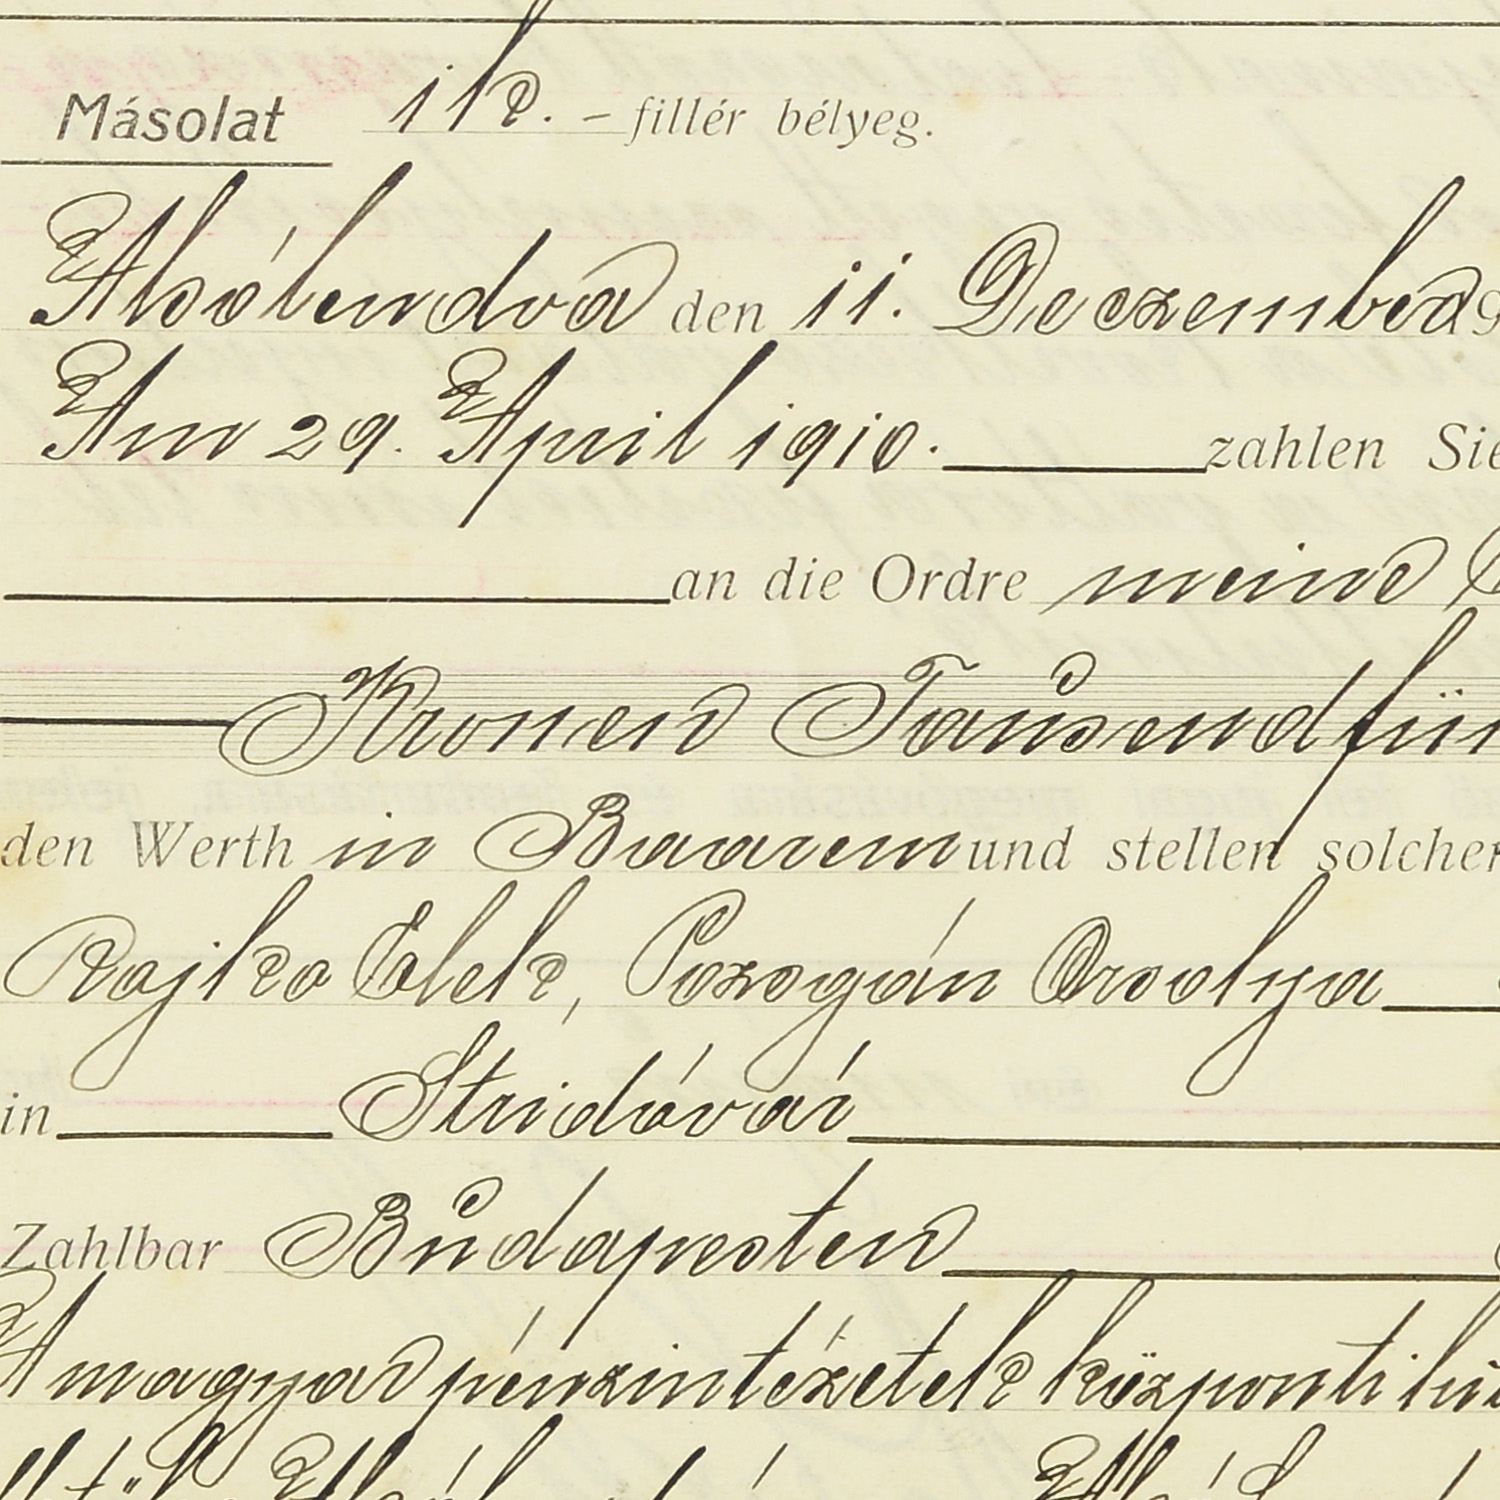 Másolat 1 k. - fillér bélyeg.
Alsólendva den 11. Dezember 19
Am 29. April 1910. zahlen Sie
an die Ordre meine
Kronen Tausendfün
den Werth in Baarem und stellen solchen
Rajko Elek, Pozsgán Orsolya
in Stridóvár
Zahlbar Budapesten
A magyar pénzintézetek központi